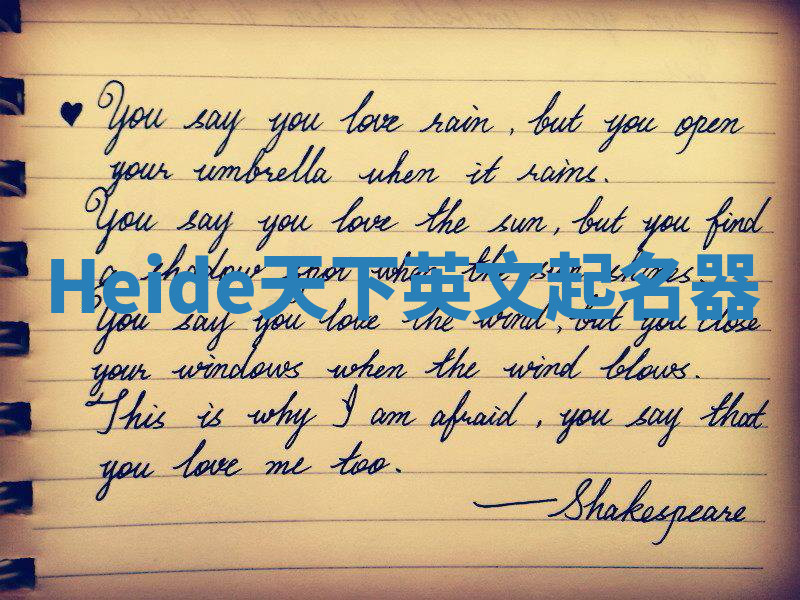 ♥ You say you love rain, but you open
your umbrella when it rains.
You say you love the sun, but you find
a shadow spot when the sun shines.
Heide天下英文起名器
You say you love the wind, but you close
your windows when the wind blows.
This is why I am afraid, you say that
you love me too.
—Shakespeare